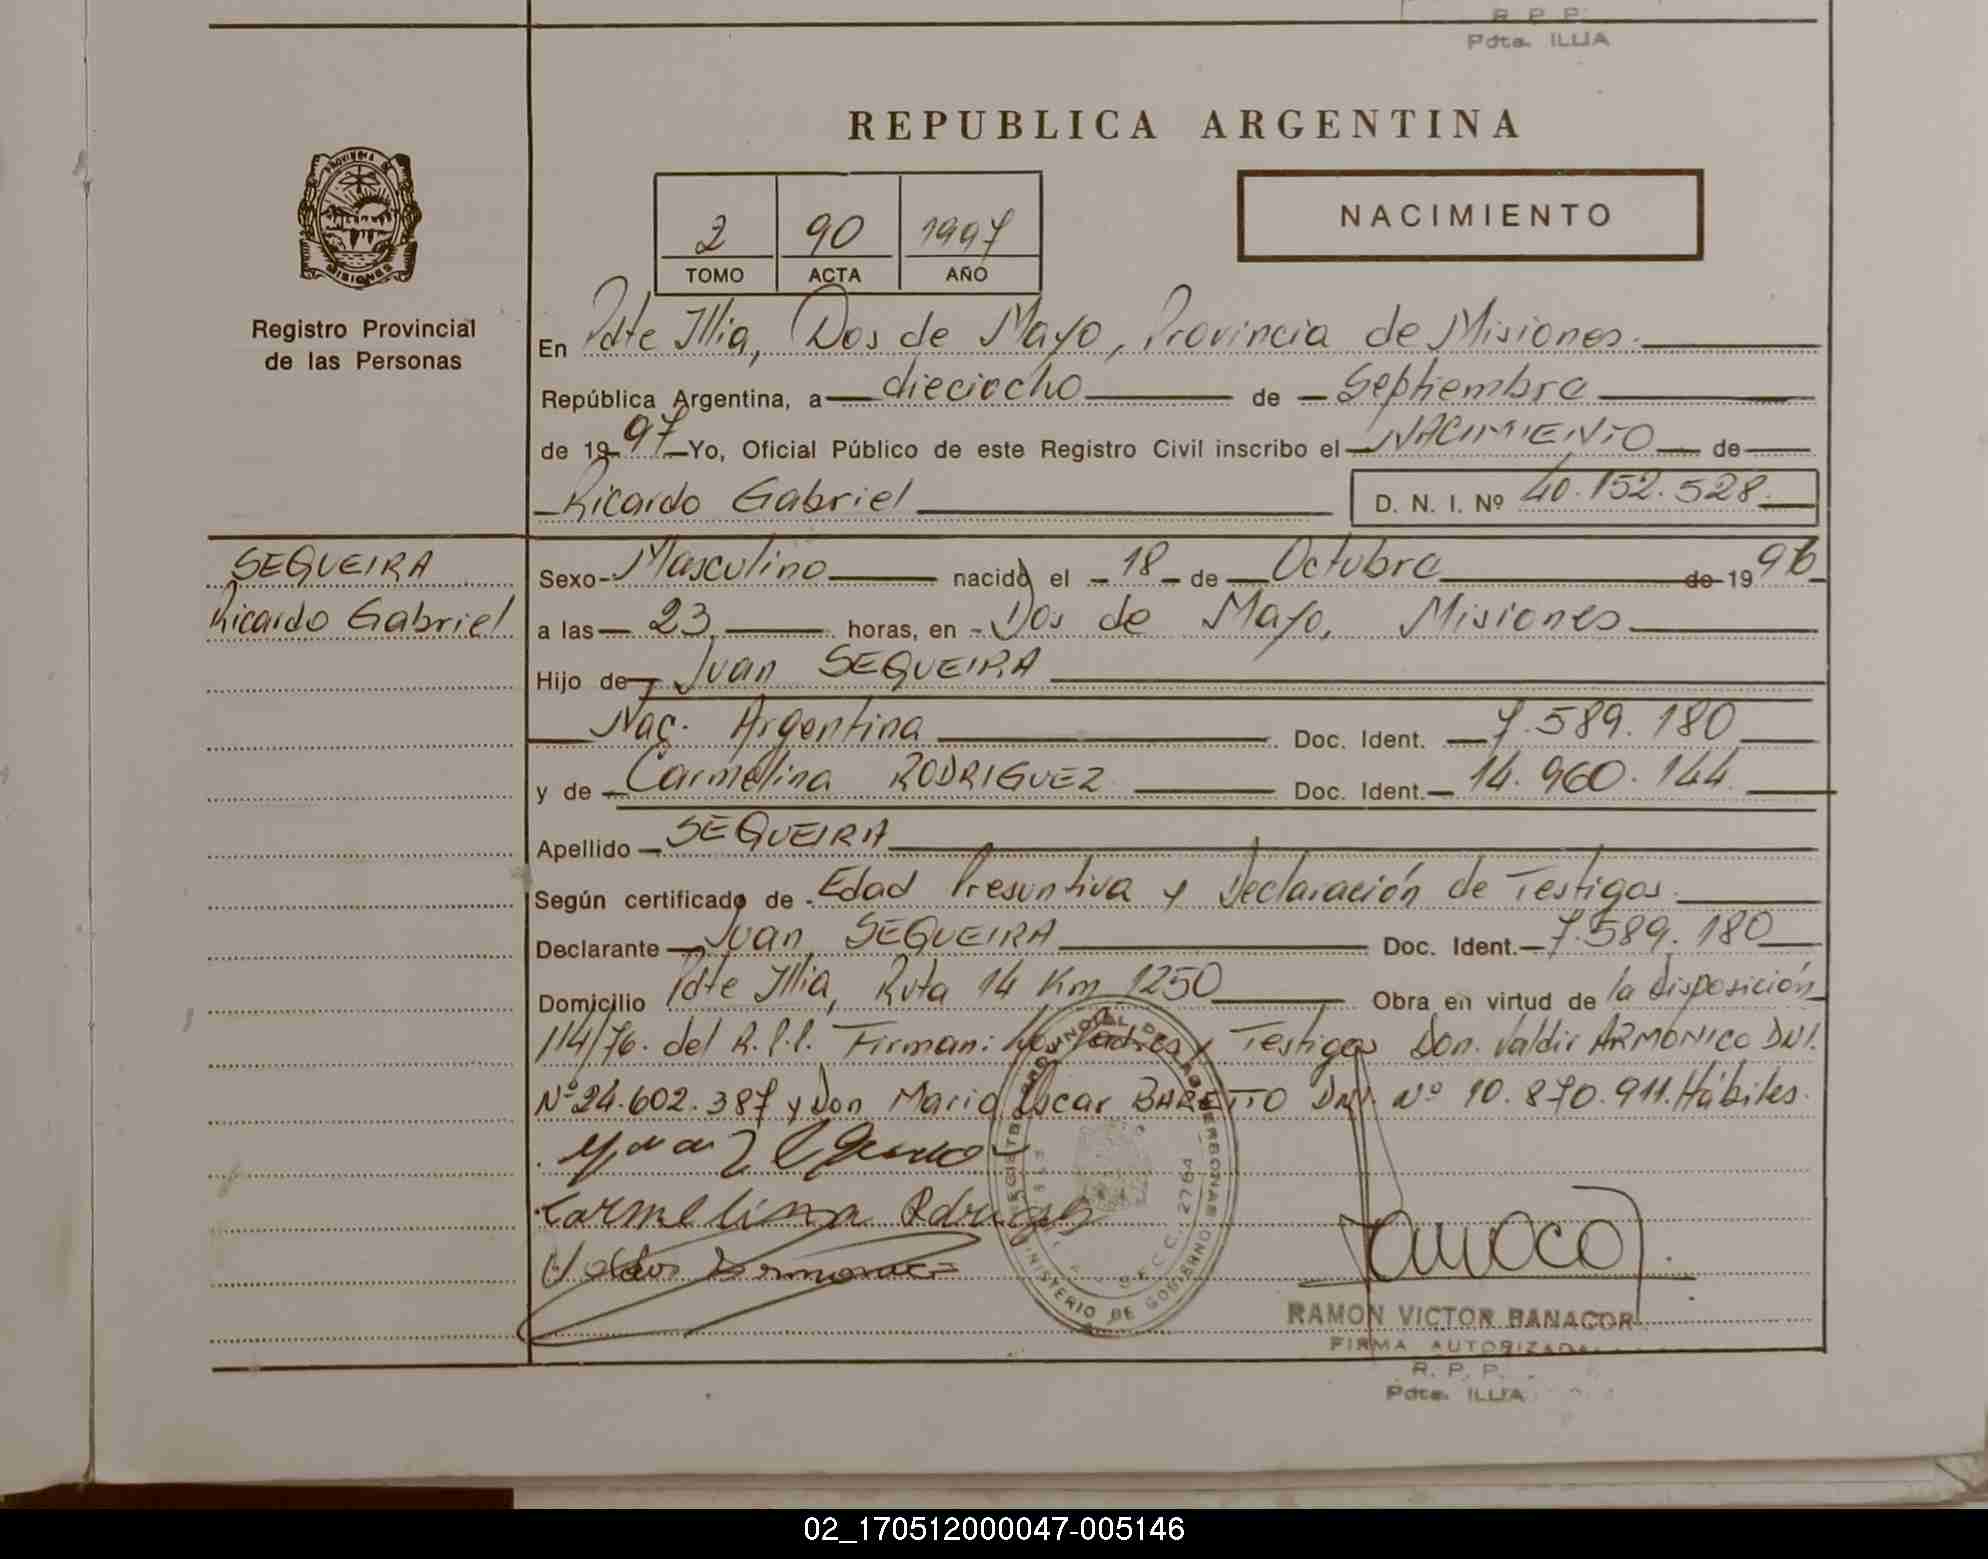 R. P. P.
Pdte. ILLIA
REPUBLICA ARGENTINA
PROVINCIA DE
MISIONES
Registro Provincial
de las Personas
2 90 1997
TOMO ACTA AÑO
NACIMIENTO
En Pdte Illia, Dos de Mayo, Provincia de Misiones.
República Argentina, a dieciocho de Septiembre
de 1997 Yo, Oficial Público de este Registro Civil inscribo el NACIMIENTO de
Ricardo Gabriel D. N. I. Nº 40.152.528.
SEQUEIRA
Ricardo Gabriel
Sexo Masculino nacido el 18 de Octubre de 1996
a las 23, horas, en Dos de Mayo, Misiones
Hijo de Juan SEQUEIRA
Nac. Argentina Doc. Ident. 7.589.180
y de Carmelina RODRIGUEZ Doc. Ident. 14.960.144
Apellido SEQUEIRA
Según certificado de Edad Presuntiva y Declaración de Testigos.
Declarante Juan SEQUEIRA Doc. Ident. 7.589.180
Domicilio Pdte Illia, Ruta 14 Km 1250 Obra en virtud de la disposición
114/76. del R.P.P. Firman: los Padres y Testigos Don. Valdir ARMONICO DNI.
Nº 24.602.387 y Don Mario Oscar BARETTO DNI. Nº 10.870.911. Hábiles.
Carmelina
REGISTRO PROVINCIAL DE LAS PERSONAS
MINISTERIO DE GOBIERNO
2764
RAMON VICTOR BANACOR
FIRMA AUTORIZADA
R. P. P.
Pdte. ILLIA
02_170512000047-005146